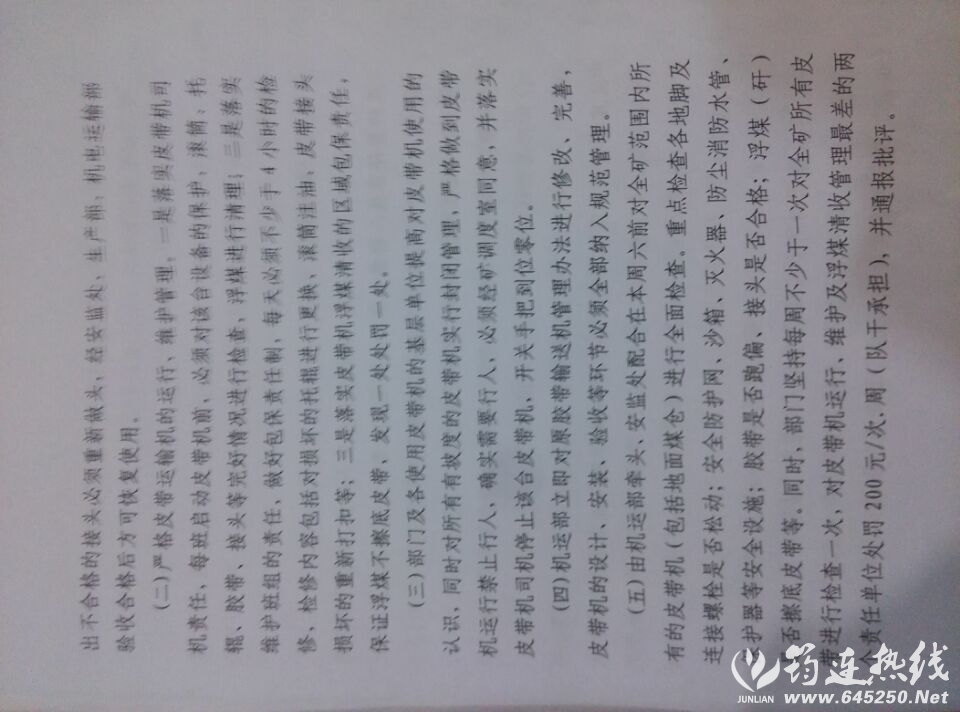 出不合格的接头必须重新做头，经安监处、生产部、机电运输部
验收合格后方可恢复使用。
(二)严格皮带运输机的运行、维护管理。一是落实皮带机司
机责任，每班启动皮带机前，必须对该台设备的保护、滚筒、托
辊、胶带、接头等完好情况进行检查，浮煤进行清理；二是落实
维护班组的责任，做好包保责任制，每天必须不少于4小时的检
修，检修内容包括对损坏的托辊进行更换、滚筒注油、皮带接头
损坏的重新打扣等；三是落实皮带机浮煤清收的区域包保责任，
保证浮煤不擦底皮带、发现一处处罚一处。
(三)部门及各使用皮带机的基层单位提高对皮带机使用的
认识，同时对所有有坡度的皮带机实行封闭管理，严格做到皮带
机运行禁止行人，确实需要行人，必须经矿调度室同意，并落实
皮带机司机停止该台皮带机，开关手把到位零位。
(四)机运部立即对摩胶带输送机管理办法进行修改、完善，
皮带机的设计、安装、验收等环节必须全部纳入规范管理。
(五)由机运部牵头、安监处配合在本周六前对全矿范围内所
有的皮带机(包括地面煤仓)进行全面检查。重点检查各地脚及
连接螺栓是否松动；安全防护网、沙箱、灭火器、防尘消防水管、
保护器等安全设施；胶带是否跑偏、接头是否合格；浮煤(矸)
是否擦底皮带等。同时、部门坚持每周不少于一次对全矿所有皮
带进行检查一次，对皮带机运行、维护及浮煤清收管理最差的两
个责任单位处罚200元/次.周(队干承担)，并通报批评。
筠连热线
JUNLIAN www.645250.Net